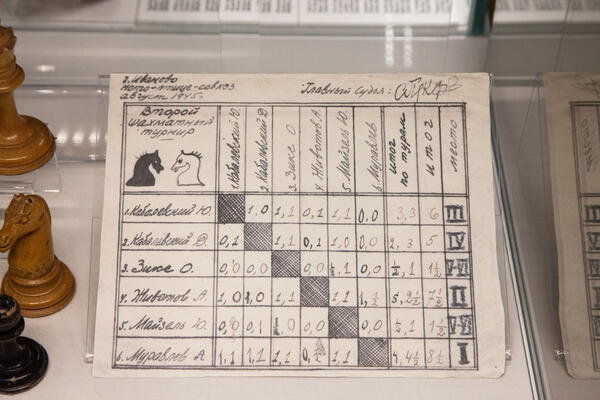 г. Иваново
август 1945г.
Главный Судья:
Второй
шахматный
турнир
1. Кабалевский Ю.
2. Кабалевский Д.
3. Зике О.
4. Животов А.
5. Майзель Ю.
6. Муравлев
итог
по турам
итог
место
1. Кабалевский Ю. 1,0 1,1 0,1 1,1 0,0 3,3 6 III
2. Кабалевский Д. 0,1 1,1 0,1 1,0 0,0 2,3 5 IV
3. Зике О. 0,0 0,0 0,0 ½,1 0,0 ½,1 1½ V-VI
4. Животов А. 1,0 1,0 1,1 1,1 1,½ 5,2½ 7½ II
5. Майзель Ю. 0,0 0,1 0,0 0,0 ½,1 1½ V-VI
6. Муравлев А 1,1 1,1 1,1 1,1 4,4½ 8½ I